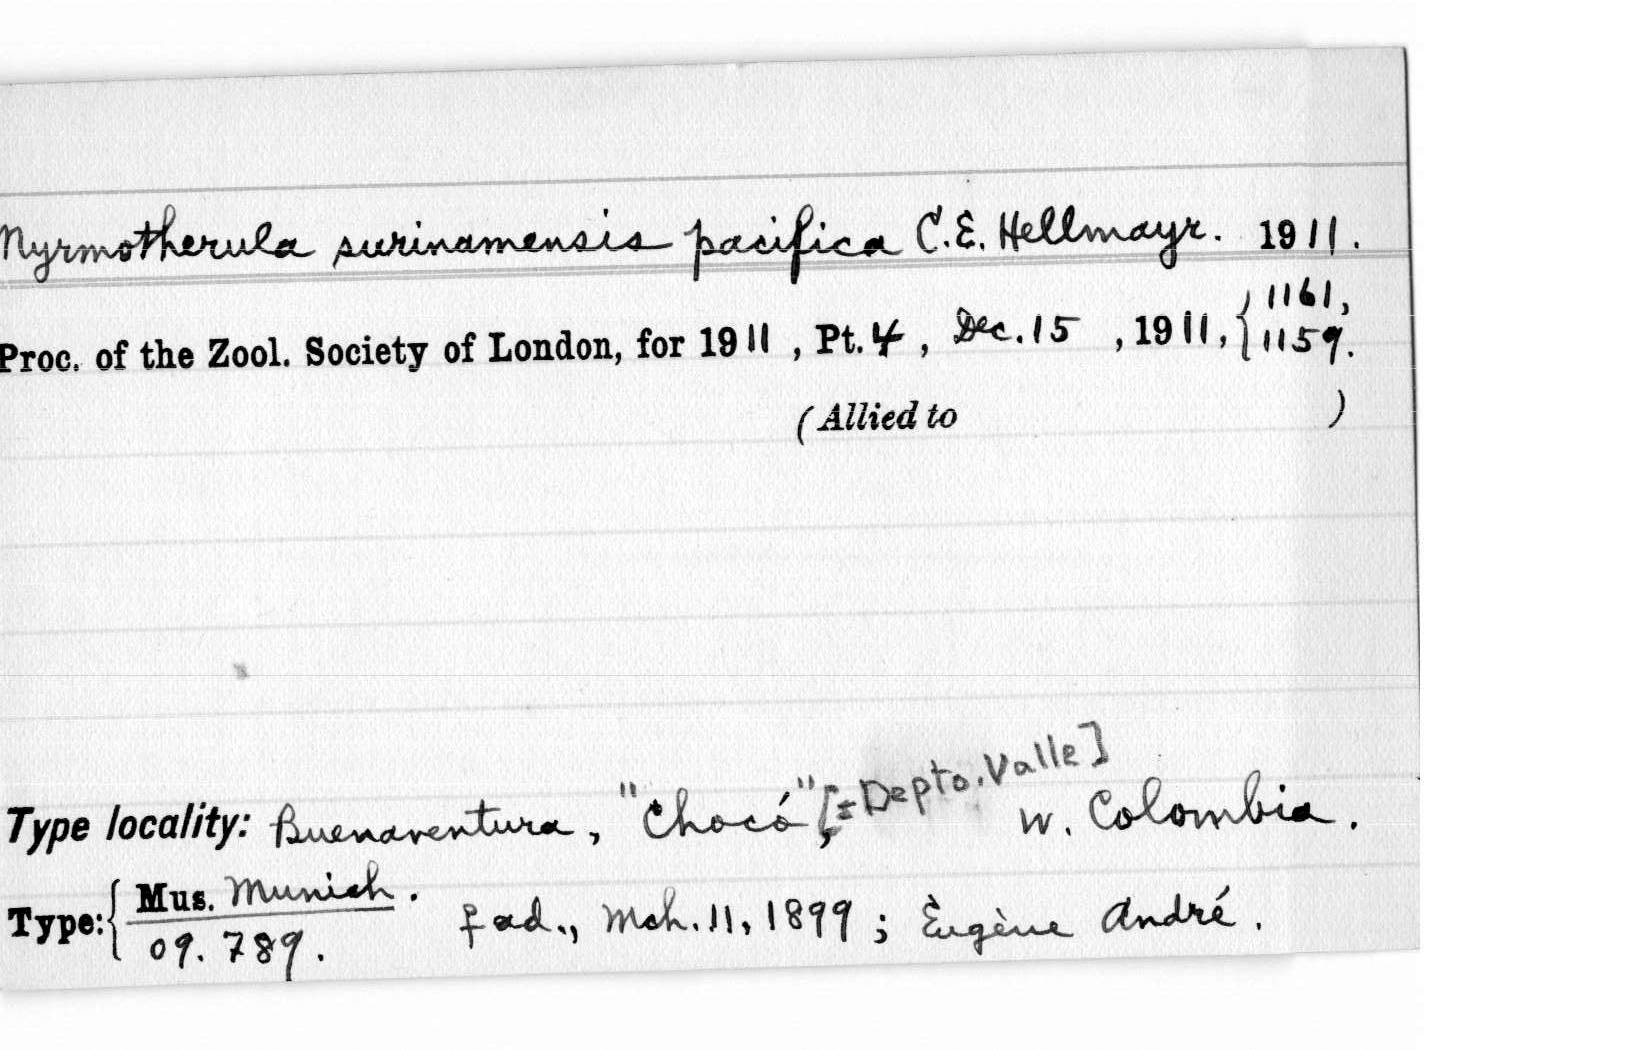 Myrmotherula surinamensis pacifica C.E. Hellmayr. 1911.
Proc. of the Zool. Society of London, for 1911, Pt. 4, Dec. 15, 1911, { 1161, 1159.
(Allied to )
Type locality: Buenaventura, "Chocó", [= Depto. Valle] W. Colombia.
Type: { Mus. Munich. ♀ ad., Mch. 11, 1899; Eugène André.
09. 789.